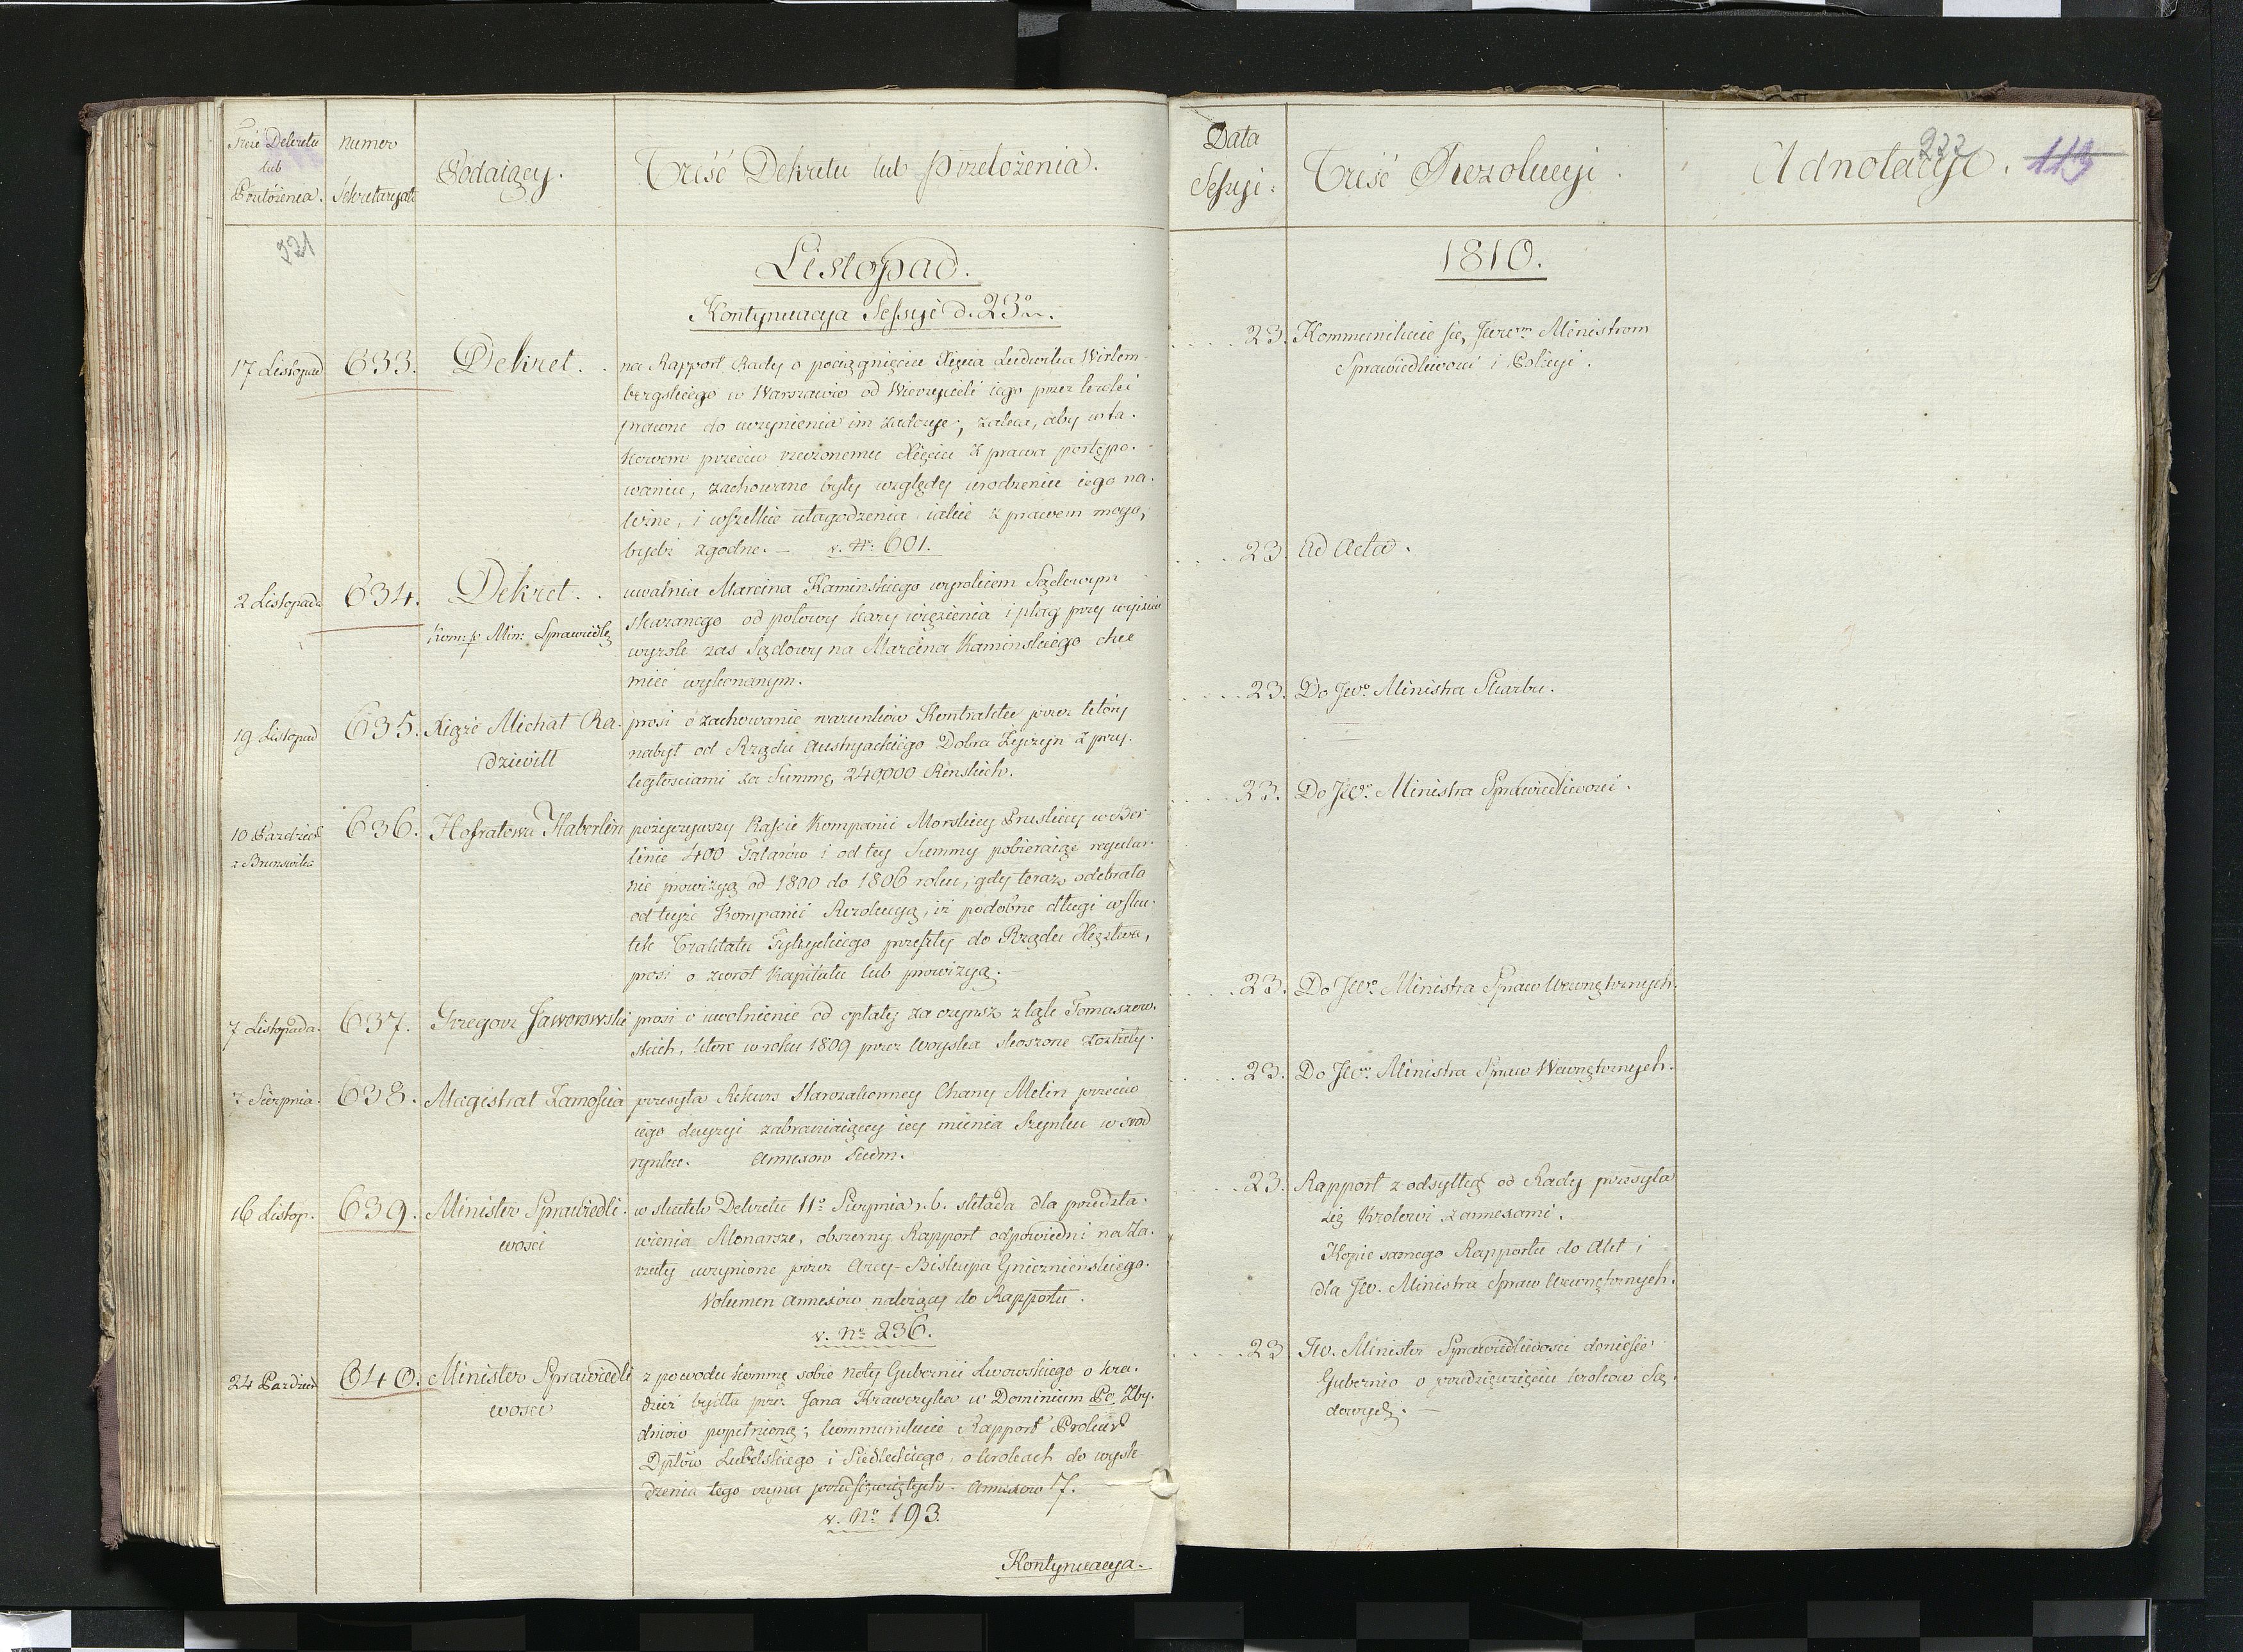 Treść Dekretu
lub
Przełożenia.
Numer
Sekretaryatu
Podaiący.
Treść Dekretu lub przełożenia.
931
Listopad.
Kontynuacya Sessyi d. 23º
17 Listopad
633.
Dekret.
na Rapport Rady o pociągnięciu Xięcia Ludwika Wirtem-
bergskiego w Warszawie od Wierzycieli iego przez kroki
prawne do uczynienia im zadosyć, zaleca, aby w ta-
kowem przeciw rzeczonemu Xięciu z prawa postępo-
waniu, zachowane były względy urodzeniu iego na-
leżne, i wszelkie ułagodzenia iakie z prawem mogą
bydź zgodne. — v. Nº 601.
2 Listopada
634.
Dekret.
Kom: p Min: Sprawiedl
uwalnia Marcina Kaminskiego wyrokiem Sądowym
skazanego od połowy kary więzienia i plag przy wyiściu
wyrok zas Sądowy na Marcina Kaminskiego chce
mieć wykonanym.
19 Listopad
635.
Xiąże Michał Ra-
dziwiłł
prosi o zachowanie warunków Kontraktu przez który
nabył od Rządu Austryackiego Dobra Życzyn z przy-
ległosciami za Summę 240000 Renskich.
10 Pazdziek
z Brunszwika
636.
Hofratowa Haberlin
pożyczywszy Kassie Kompanii Morskiey Pruskiey w Ber-
linie 400 Talarów i od tey Summy pobieraiąc regular-
nie prowizyą od 1800 do 1806 roku, gdy teraz odebrała
od teyże Kompanii Rezolucyą, iż podobne długi wsku-
tek Traktatu Tylżyckiego przeszły do Rządu Xięztwa,
prosi o zwrot Kapitału lub prowizyą. —
7 Listopada.
637.
Grzegorz Jaworowski
prosi o uwolnienie od opłaty za czynsz z łąk Tomaszow-
skich, które w roku 1809 przez Woyska skoszone zostały.
7 Sierpnia.
638.
Magistrat Zamościa
przesyła Rekurs Starozakonney Chany Melin przeciw
iego decyzyi zabraniaiącey iey mienia Szynku w srod
rynku. Annexow siedm.
16 Listop.
639.
Minister Sprawiedli-
wosci
w skutek Dekretu 11º Sierpnia r. b. składa dla przedsta-
wienia Monarsze, obszerny Rapport odpowiedni na Za-
rzuty uczynione przez Arcy-Biskupa Gnieznienskiego.
Volumen Annexów należący do Rapportu.
v. Nº 236.
24 Pazdzier
640.
Minister Sprawiedli
wosci
z powodu kommę sobie Noty Gubernii Lwowskiego o kra-
dzież bydła przez Jana Krawczyka w Dominium Zby-
dniow popełnioną; kommunikuie Rapport Prokur
Dpttów Lubelskiego i Siedleckiego, o krokach do wysle-
dzenia tego czynu przedsięwziętych. Annexow 7.
v. Nº 193.
Kontynuacya.
Data
Sessyi.
Treść Rezolucyi.
Adnotacye.
932
113
1810.
23. Kommunikuie się Jwm Ministrom
Sprawiedliwosci i Policyi.
23. Ad Acta.
23. Do Jwo Ministra Skarbu.
23. Do Jwo Ministra Sprawiedliwosci.
23. Do Jwo Ministra Spraw Wewnętrznych.
23. Do Jwo Ministra Spraw Wewnętrznych.
23. Rapport z odsyłką od Rady przesyła
się Krolowi z annexami.
Kopie samego Rapportu do Akt i
dla Jw. Ministra Spraw Wewnętrznych.
23 Jw. Minister Sprawiedliwosci doniesie
Gubernio o przedsięwzięciu krokow Są-
dowych. —